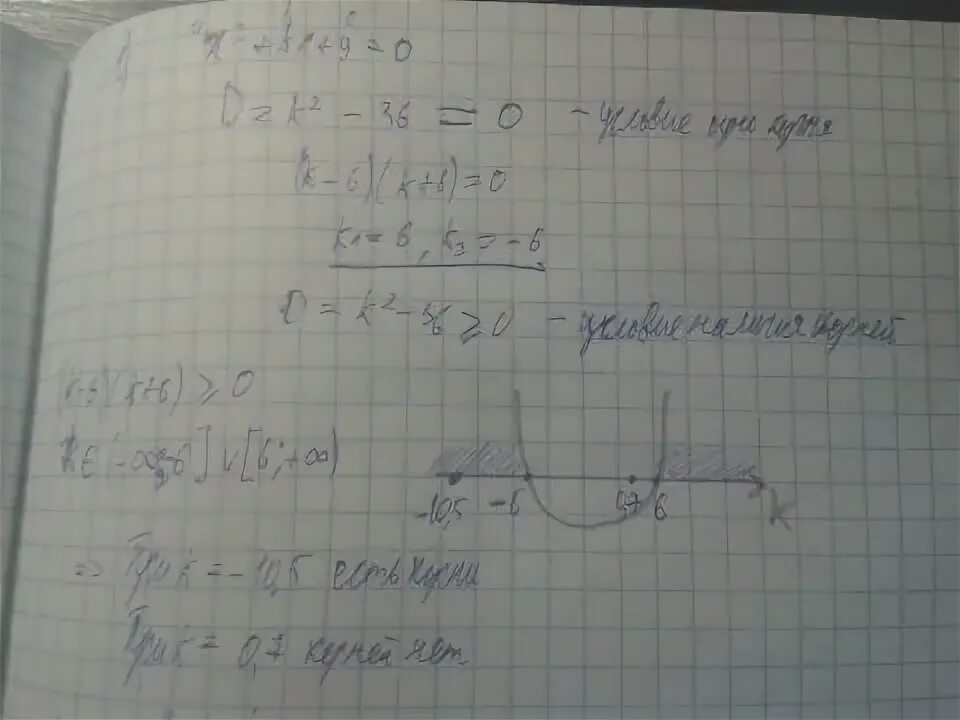 x² + kx + 9 = 0
D = k² - 36 = 0 - условие одно корня
(k - 6)(k + 6) = 0
k₁ = 6, k₂ = -6
D = k² - 36 ≥ 0 - условие наличия корней
(k-6)(k+6) ≥ 0
k ∈ (-∞; -6] ∨ [6; +∞)
-10,5 -6 0,7 6 k
=> При k = -10,5 есть корни
При k = 0,7 корней нет